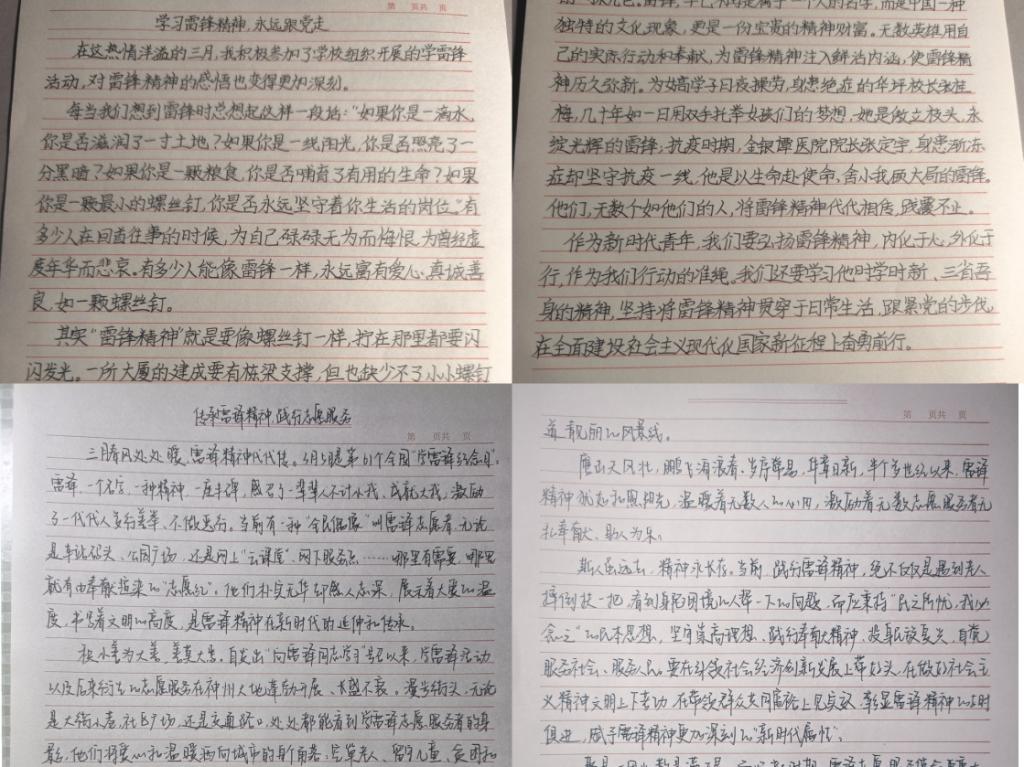 第 页共 页
学习雷锋精神,永远跟党走
在这热情洋溢的三月,我积极参加了学校组织开展的学雷锋
活动,对雷锋精神的感悟也变得更加深刻。
每当我们想到雷锋时总想起这样一段话:"如果你是一滴水,
你是否滋润了一寸土地?如果你是一线阳光,你是否照亮了一
分黑暗?如果你是一颗粮食,你是否哺育了有用的生命?如果
你是一颗最小的螺丝钉,你是否永远坚守着你生活的岗位"。有
多少人在回首往事的时候,为自己碌碌无为而悔恨,为曾经虚
度年华而悲哀。有多少人能像雷锋一样,永远富有爱心、真诚善
良,如一颗螺丝钉。
其实"雷锋精神"就是要像螺丝钉一样,拧在那里都要闪
闪发光。一所大厦的建成要有栋梁支撑,但也缺少不了小小螺钉
独特的文化现象,更是一份宝贵的精神财富。无数英雄用自
己的实际行动和奉献,为雷锋精神注入鲜活内涵,使雷锋精
神历久弥新。为女高学子日夜操劳,身患绝症的华坪校长张桂
梅,几十年如一日用双手托举女孩们的梦想,她是傲立枝头,永
绽光辉的雷锋;抗疫时期,金银潭医院院长张定宇,身患渐冻
症却坚守抗疫一线,他是以生命赴使命,舍小我顾大局的雷锋。
他们,无数个如他们的人,将雷锋精神代代相传,践履不止。
作为新时代青年,我们要弘扬雷锋精神,内化于心,外化于
行,作为我们行动的准绳。我们还要学习他时学时新、三省吾
身的精神,坚持将雷锋精神贯穿于日常生活,跟紧党的步伐,
在全面建设社会主义现代化国家新征程上奋勇前行。
传承雷锋精神,践行志愿服务
第 页共 页
三月春风处处暖,雷锋精神代代传。3月5日是第61个全国"学雷锋纪念日"。
雷锋,一个名字,一种精神,一座丰碑,感召了一辈辈人不计小我,成就大我,激励
了一代代人多行善举、不做恶行。当前有一种"全民偶像"叫雷锋志愿者,无论
是车站码头、公园广场,还是网上"云课堂"、网下服务点……哪里有需要,哪里
就有由奉献渲染的"志愿红"。他们朴实无华却感人至深,展示着大爱的温
度,书写着文明的高度,是雷锋精神在新时代的延伸和传承。
积小善为大善,善莫大焉。自发出"向雷锋同志学习"号召以来,学雷锋活动
以及后来衍生的志愿服务在神州大地蓬勃开展、长盛不衰。漫步街头,无论
是大街小巷、社区广场,还是交通路口,处处都能看到学雷锋志愿服务者的身
影,他们将爱心和温暖洒向城市的每个角落,空巢老人、留守儿童、贫困和
第 页共 页
道靓丽的风景线。
唐山大风壮,鹏飞海浪春。岁序常易,华章日新,半个多世纪以来,雷锋
精神犹如和煦阳光,温暖着无数人的心田,激励着无数志愿服务者无
私奉献、助人为乐。
斯人虽远去,精神永长存。当前,践行雷锋精神,绝不仅仅是遇到老人
摔倒扶一把,看到身陷困境的人帮一下的问题,而应秉持"民之所忧,我必
念之"的民本思想,坚守崇高理想、践行奉献精神、投身民族复兴,自觉
服务社会、服务人民,要在引领社会经济创新发展上带好头,在做好社会主
义精神文明上下苦功,在带领群众共同富裕上见实效,彰显雷锋精神的与时
俱进,赋予雷锋精神更加深刻的"新时代属性"。